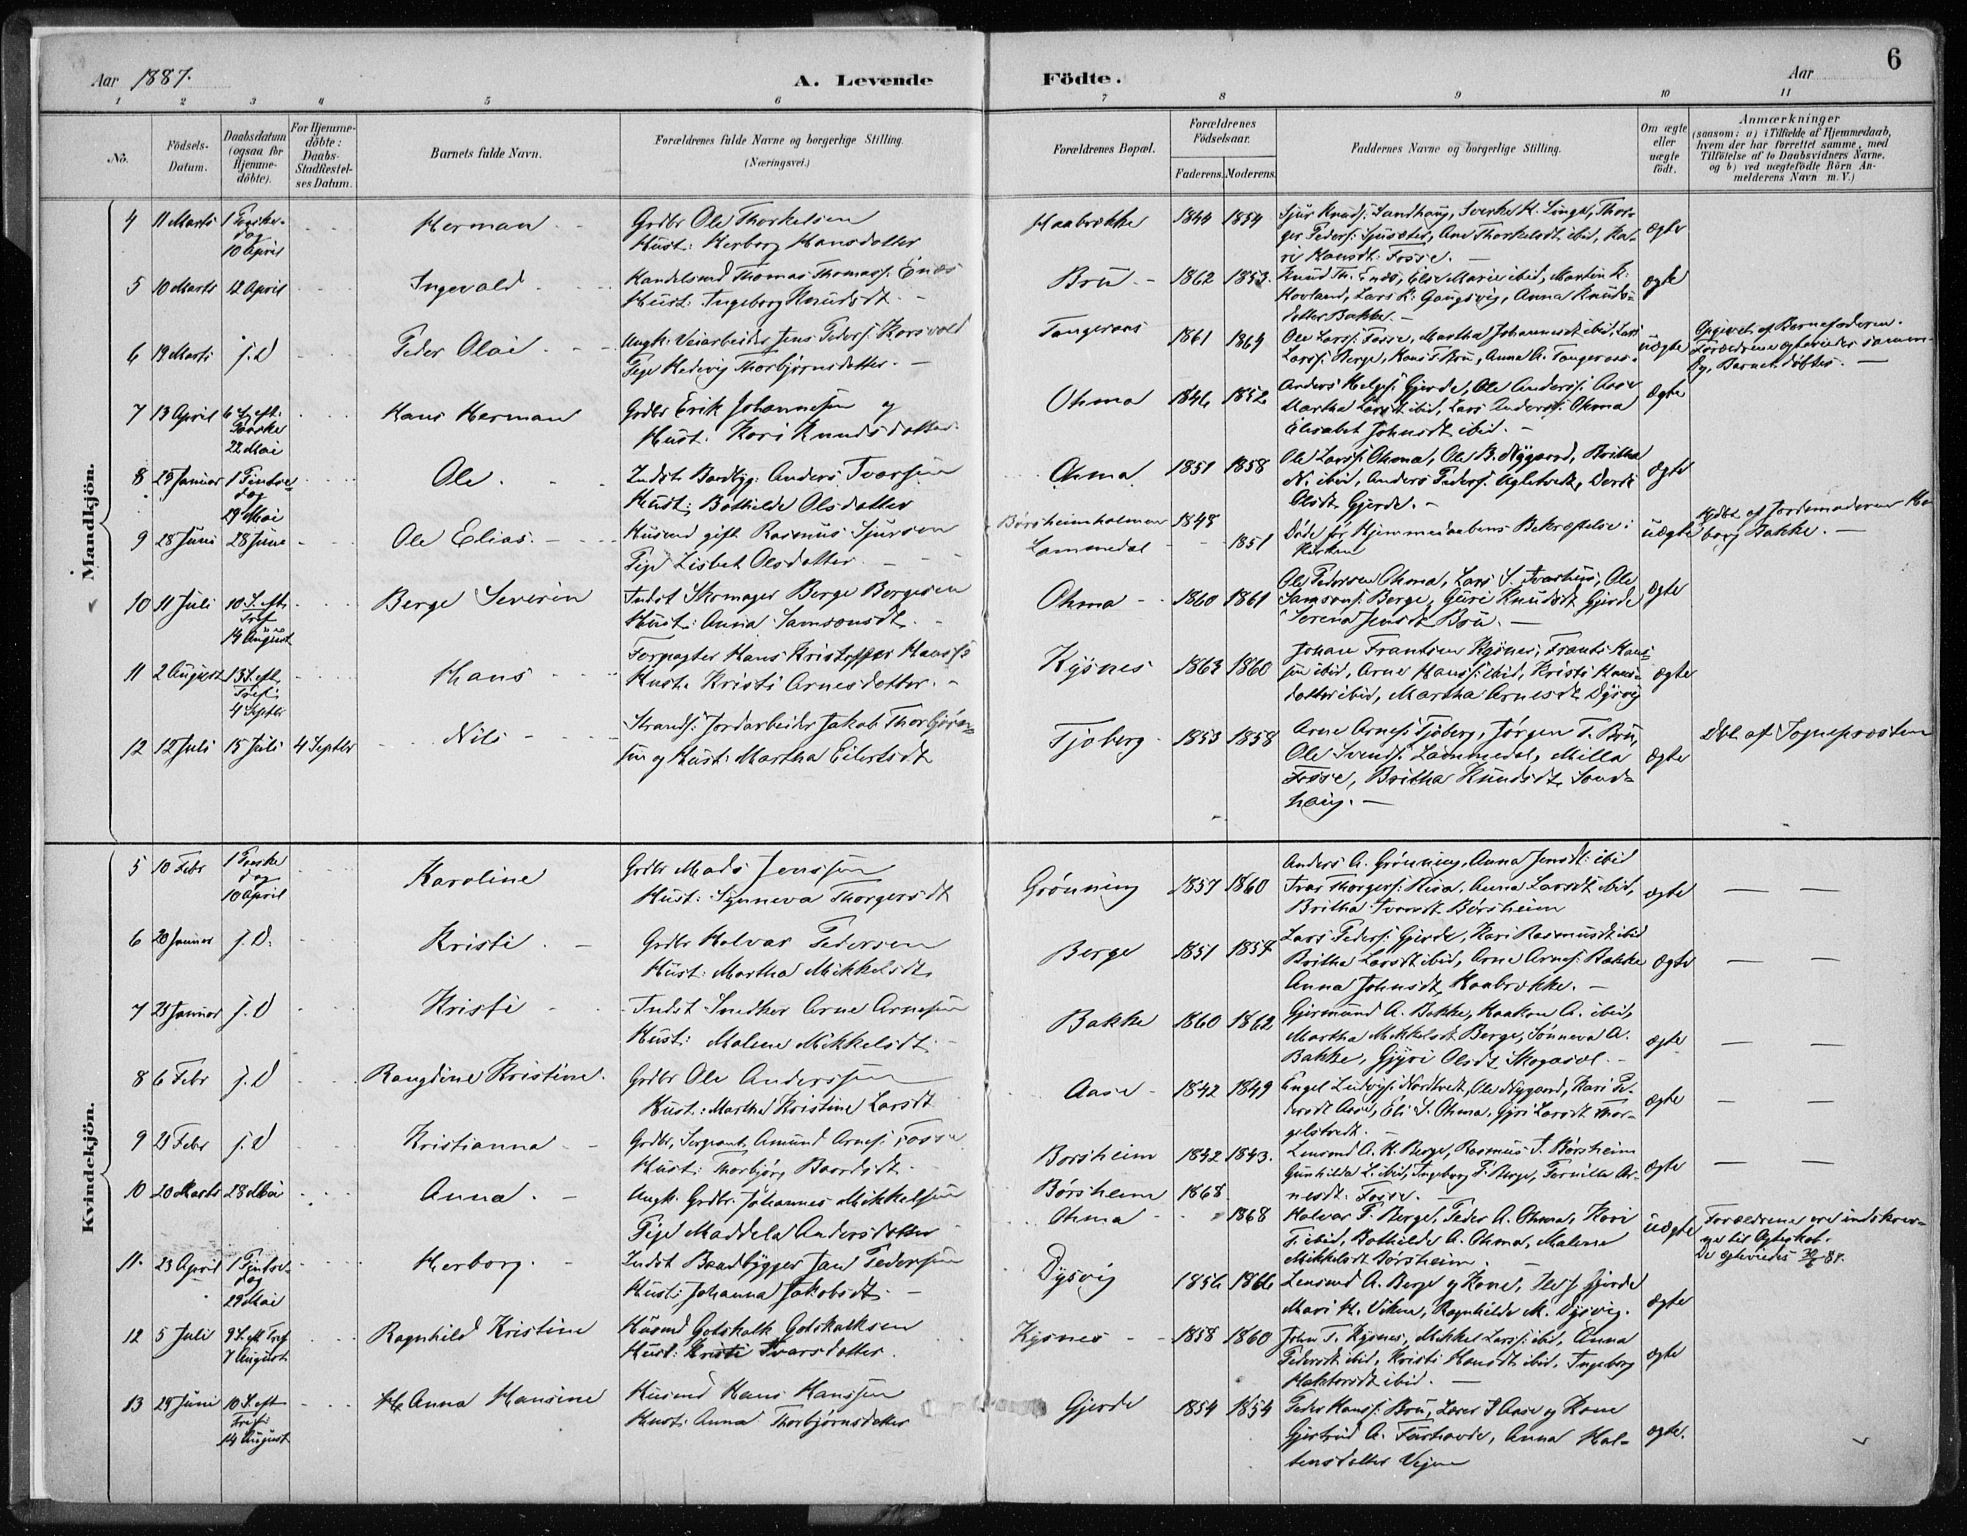 Aar 1887.
A. Levende
Födte.
Aar
6
1 2 3 4 5 6 7 8 9 10 11
No.
Födsels-
Datum.
Daabsdatum
(ogsaa for
Hjemme-
döbte).
For Hjemme-
döbte:
Daabs-
Stadfæstel-
ses Datum.
Barnets fulde Navn.
Forældrenes fulde Navne og borgerlige Stilling.
(Næringsvei.)
Forældrenes Bopæl.
Forældrenes
Födselsaar.
Faderens. Moderens.
Faddernes Navne og borgerlige Stilling.
Om ægte
eller
uægte
födt.
Anmærkninger
(saasom: a) i Tilfælde af Hjemmedaab,
hvem der har forrettet samme, med
Tilföielse af to Daabsvidners Navne.
og b) ved uægtefödte Börn An-
melderens Navn m. V.)
Mandkjön.
4 11 Marts 1 Paaske-
dag
10 April
Herman
Grdbr Ole Thorkelsen
Hust: Herborg Hansdatter
Haabrække 1844 1854
Sjur Knuds: Sandhaug, Sverke H. Linge, Thor-
ger Peders: Sjusæter, Ane Thorkelsdt ibid, Ka-
ri Hansdt: Fosse. —
ægte
5 10 Marts 12 April
Ingevald
Handelsmd Thomas Thomass: Enæs
Hust: Ingeborg Knudsdt. —
Bru 1862 1853.
Knud Th. Enæs, Elise Marie ibid, Martin K.
Hovland, Lars K. Gaugsvig, Anna Knuds-
datter Bakke. —
ægte
6 19 Marts j. D
Peder Olai
Ungk: Veiarbeider Jens Peders: Korsvold
Pige Hedevig Thorbjørnsdatter. —
Tangeraas 1861 1864
Ole Larss: Fosse, Martha Johannesdt ibid, Lars
Larss: Berge, Hans T. Bru, Anna A. Tangeraas.
uægte
Opgivet af Barnefaderen.
Forældrene ægteviedes samme
Dg, Barnet døbtes. —
7 13 April 6 S. eft:
Paaske
22 Mai
Hans Herman
Grdbr Erik Johannesen og
Hust: Kari Knudsdatter
Ohma 1846 1852
Anders Helges: Gjerde, Ole Anderss: Aase
Martha Larsdt ibid, Lars Anderss: Ohma
Elisabet Johnsdt ibid. —
ægte
8 25 Januar 1 Pintse-
dag
29 Mai
Ole
Indst Baadbyg: Anders Ivarsen
Hust: Bothilde Olsdatter
Ohma 1851 1858
Ole Larss: Ohma, Ole B. Nygaard, Britha
N. ibid, Anders Peders: Agletvedt, Dorte
Olsdt Gjerde. —
ægte
9 28 Juni 28 Juni
Ole Elias.
Husmd gift Rasmus Sjursen
Pige Lisbet Olsdatter —
Børsheimholmen 1848
Lammedal 1851
Døde før Hjemmedaabens Bekræftelse i
Kirken
uægte
Hjdbt af Jordemoderen Ha-
borg Bakke. —
10 11 Juli 10 S. eft:
Tref
14 August
Berge Severin
Indst Skomager Berge Borgesen
Hust: Anna Samsonsdt. —
Ohma 1860 1861
Ole Pedersen Ohma, Lars S. Tvarhus, Ole
Samsons: Berge, Guri Knudsdt Gjerde
Serena Jensdt Bru. —
ægte
11 2 August 13 S. eft.
Tref:
4 Septbr
Hans
Forpagter Hans Kristoffer Hanss:
Hust: Kristi Arnesdatter. —
Kysnes 1863 1860
Johan Frantsen Kysnes, Frants Hans-
sen ibid, Arne Hanss: ibid, Kristi Hans-
datter ibid, Martha Arnesdt Dysvig
ægte
12 12 Juli 15 Juli 4 Septbr
Nils
Strands: Jordarbeider Jakob Thorbjørn-
sen og Hust: Martha Eilertsdt
Tjoberg 1853 1858
Arne Arnes: Tjoberg, Jørgen T. Bru,
Ole Svends: Lammedal, Milla
Fosse, Britha Knudsdt, Sand-
haug. —
ægte
Dbt af Sognepresten
Kvindekjön.
5 10 Febr 1 Paaske
dag
10 April
Karoline
Grdbr Mads Jenssen
Hust: Synneva Thorgersdt
Grønning 1857 1860
Anders A. Grønning, Anna Jensdt: ibid
Ivar Thorgers: Risa, Anna Larsdt ibid,
Britha Ivarsdt Børsheim
ægte — —
6 20 Januar j. D.
Kristi
Grdbr Halvar Pedersen
Hust: Martha Mikkelsdt.
Berge 1851 1854
Lars Peders: Gjerde, Kari Rasmusdt ibid
Britha Larsdt ibid, Arne Arnes: Bakke
Anna Johnsdt, Haabrække. —
ægte — —
7 23 Januar j. D
Kristi
Indst Snedker Arne Arnesen
Hust: Malene Mikkelsdt
Bakke 1860 1862
Gjermund A. Bakke, Haakon A. ibid,
Martha Mikkelsdt Berge, Sønneva A.
Bakke, Gjyri Olsdt Skogasæl. —
ægte — —
8 6 Febr j. D
Rangdine Kristine.
Grdbr Ole Anderssen
Hust: Martha Kristine Larsdt
Aase 1842 1849
Engel Ludvigs: Nordtvedt, Ole Nygaard, Kari Pe-
dersdt Aase, Eli S. Ohma, Gjri Larsdt Thor-
gilstvedt. —
ægte — —
9 21 Febr j. D
Kristianna
Grdbr, Sergeant Amund Arnes: Fosse
Hust: Thorbjør, Baardsdt.
Borsheim 1842 1843.
Lensmd A. K. Berge, Rasmus T. Børsheim
Gunhilda L. ibid, Ingeborg P. Berge, Pernille Ar-
nesdt. Fosse. —
ægte — —
10 20 Marts 28 Mai
Anna.
Ungk. Grdbr: Johannes Mikkelsen
Pige Maddela Andersdatter
Børsheim 1868
Ohma 1868
Halvar P. Berge, Peder A. Ohma, Kari
T. ibid, Bothilde A. Ohma, Malene
Mikkelsdt Borsheim. —
uægte
Forældrene ere indskrev-
ne til Ægteskab.
De ægteviedes 30/5 87.
11. 23 April 1 Pintse-
dag
29 Mai
Herborg.
Indst Baadbygger Jan Pedersen
Hust: Johanna Jakobsdt. —
Dysvig 1856 1866
Lensmd A. Berge og Kone, Ole J. Gjerde
Mari H. Viken, Ragnhilde M. Dysvig.
ægte
12 5 Juli 9 S. eft Tref
7 August.
Ragnhild Kristine
Husmd Gotskalk Gotskalksen
Hust: Kristi Ivarsdatter.
Kysnes 1858 1860
John T. Kysnes, Mikkel Larss: ibid, Anna
Pedersdt ibid, Kristi Hansdt ibid, Ingeborg
Haktorsdt ibid. —
ægte
13 29 Juni 10 S. eft
Tref:
14 August
Anna Hansine
Husmd Hans Hanssen
Hust: Anna Thorbjørnsdatter
Gjerde 1854 1854
Peder Hans: Bru, Lærer J Aase og Kone
Gjertrud A. Furhovde, Anna Hal-
stensdatter Vejen
ægte.